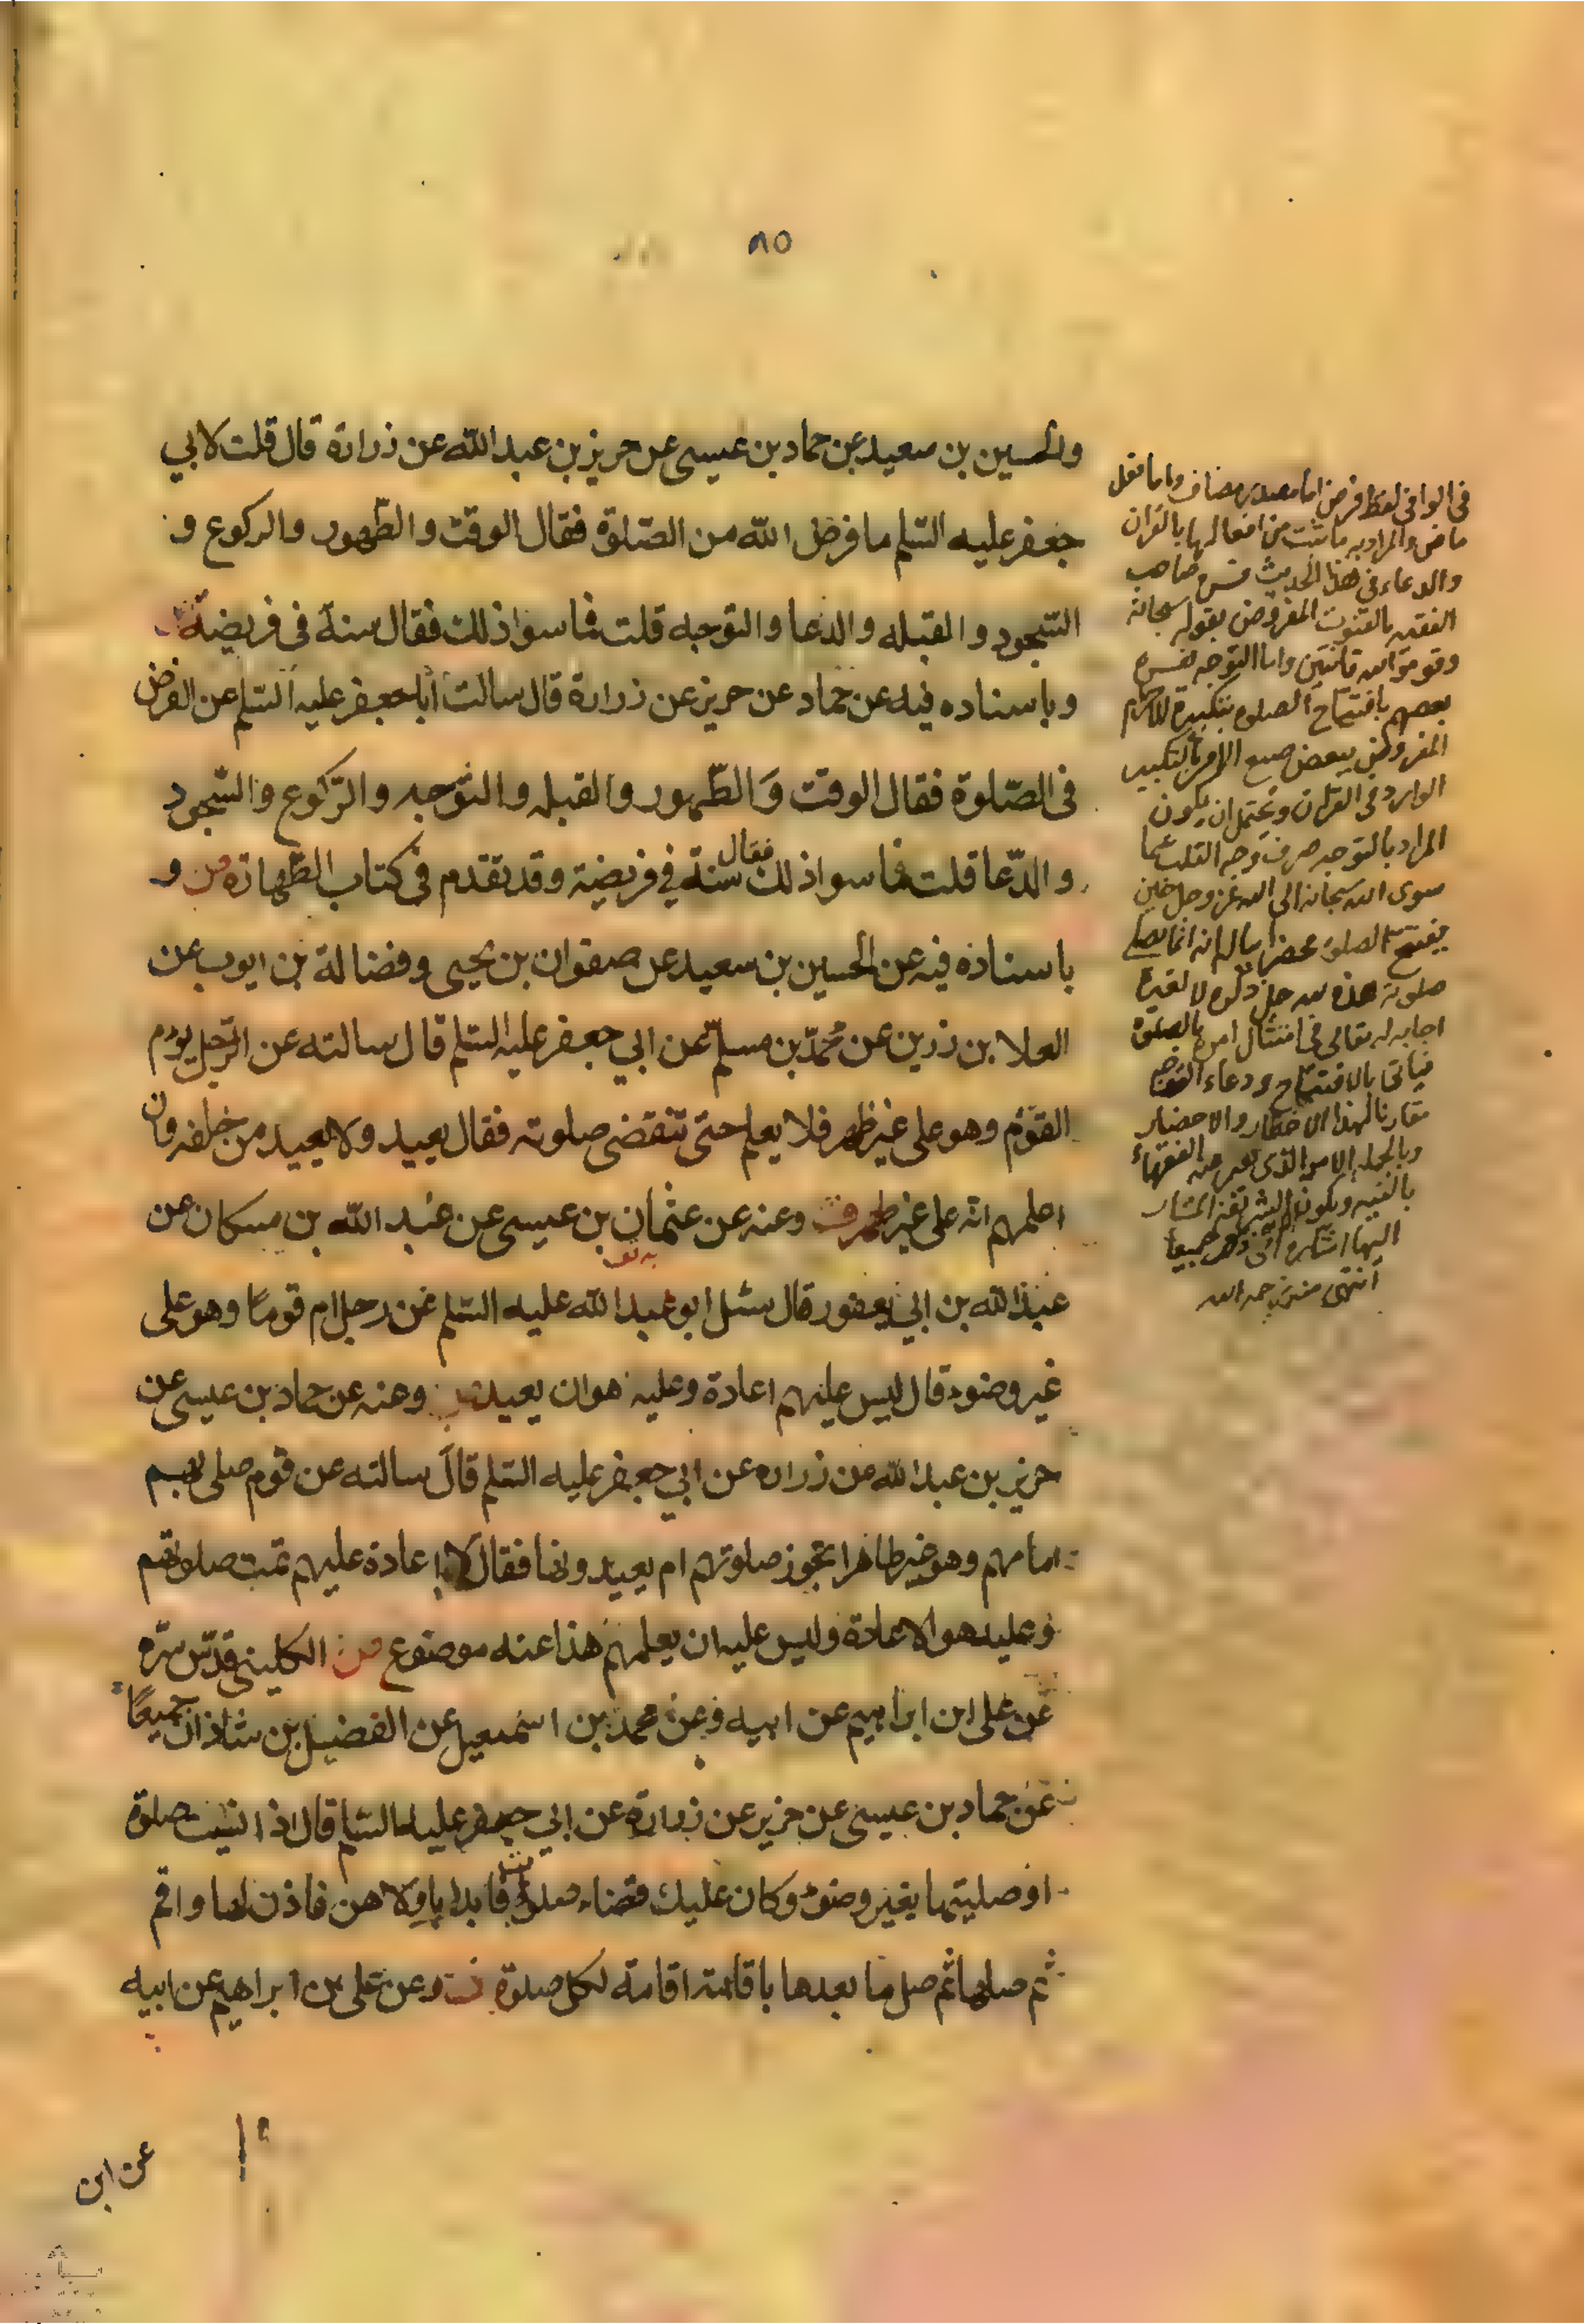 ٨٥
والحسين بن سعيد عن حماد بن عيسى عن حريز بن عبد الله عن زرارة قال قلت لابي
جعفر عليه السلم ما فرض الله من الصلوة فقال الوقت والطهور والركوع و
السجود والقبله والدعا والتوجه قلت فما سوا ذلك فقال سنة في فريضة
وباسناده فيه عن حماد عن حريز عن زرارة قال سالت أبا جعفر عليه السلم عن الفرض
في الصلوة فقال الوقت والطهور والقبله والتوجه والركوع والسجود
والدعا قلت فما سوا ذلك فقال سنة في فريضة وقد تقدم في كتاب الطهارة من و
باسناده فيه عن الحسين بن سعيد عن صفوان بن يحيى وفضالة بن ايوب عن
العلا بن رزين عن محمد بن مسلم عن ابي جعفر عليه السلم قال سالته عن الرجل يؤم
القوم وهو على غير طهر فلا يعلم حتى تنقضي صلوته فقال يعيد ولا يعيد من خلفه وان
اعلمهم انه على غير طهر وعنه عن عثمان بن عيسى عن عبد الله بن مسكان عن
عبد الله بن ابي يعفور قال سئل ابو عبد الله عليه السلم عن رجل ام قوما وهو على
غير وضوء قال ليس عليهم اعادة وعليه هو ان يعيد وعنه عن حماد بن عيسى عن
حريز بن عبد الله عن زراره عن ابي جعفر عليه السلم قال سالته عن قوم صلى بهم
امامهم وهو غير طاهر اتجوز صلوتهم ام يعيدونها فقال لا اعادة عليهم تمت صلوتهم
وعليه هو الاعادة وليس عليه ان يعلمهم هذا عنه موضوع من الكليني قدس سره
عن على ابن ابراهيم عن ابيه وعن محمد بن اسمعيل عن الفضيل بن شاذان جميعا
عن حماد بن عيسى عن حريز عن زرارة عن ابي جعفر عليه السلم قال اذا نسيت صلوة
او صليتها بغير وضوء وكان عليك قضاء صلوات فابدا باولاهن فاذن لها واقم
ثم صلها ثم صل ما بعدها باقامة اقامة لكل صلوة وعن على بن ابراهيم عن ابيه
عن ابن
في الوافي لفظ فرض اما مصدر مضاف واما فعل
ماض والمراد به ما ثبت من افعالها بالقران
والدعاء في هذا الحديث فسره صاحب
الفقيه بالقنوت المفروض بقوله سبحانه
وقوموا لله قانتين واما التوجه ففسره
بعضهم بافتتاح الصلوه بتكبيرة الاحرام
المفروض ببعض صيغ الامر بالتكبير
الوارد في القران ويحتمل ان يكون
المراد بالتوجه صرف وجه القلب عما
سوى الله سبحانه الى الله عز وجل حين
يفتتح الصلوة محضرا بباله انه انما يصلي
صلوته هذه لله جل ذكره لا لغيره
اجابه له تعالى في امتثال امره بالصلوة
فياتي بالافتتاح ودعاء التوجه
مقارنا لهذا الاخطار والاحضار
وبالجملة الامر الذي يعبر عنه الفقهاء
بالنية ويكون
اليها جميعا
انتهى منه رحمه الله